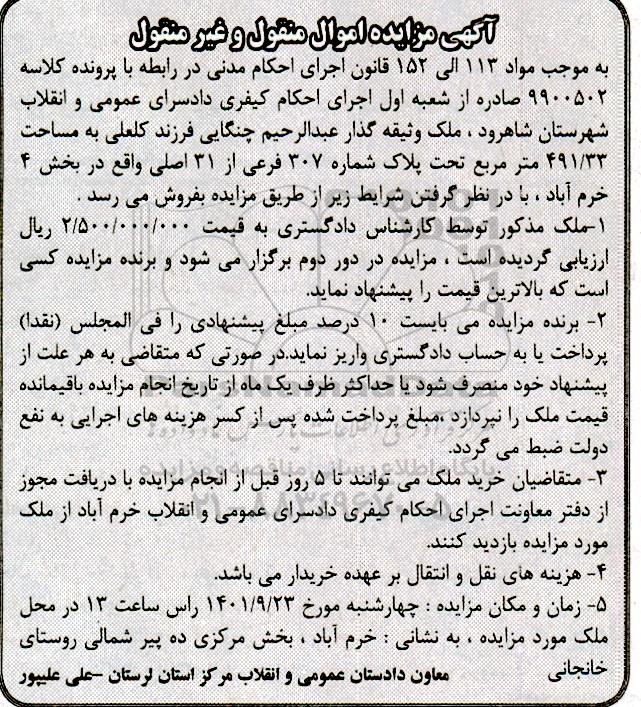 آگهی مزایده اموال منقول و غیر منقول
به موجب مواد ۱۱۳ الی ۱۵۲ قانون اجرای احکام مدنی در رابطه با پرونده کلاسه
۹۹۰۰۵۰۲ صادره از شعبه اول اجرای احکام کیفری دادسرای عمومی و انقلاب
شهرستان شاهرود ، ملک وثیقه گذار عبدالرحیم چنگایی فرزند کلعلی به مساحت
۴۹۱/۳۳ متر مربع تحت پلاک شماره ۳۰۷ فرعی از ۳۱ اصلی واقع در بخش ۴
خرم آباد ، با در نظر گرفتن شرایط زیر از طریق مزایده بفروش می رسد .
۱-ملک مذکور توسط کارشناس دادگستری به قیمت ۲/۵۰۰/۰۰۰/۰۰۰ ریال
ارزیابی گردیده است ، مزایده در دور دوم برگزار می شود و برنده مزایده کسی
است که بالاترین قیمت را پیشنهاد نماید.
۲- برنده مزایده می بایست ۱۰ درصد مبلغ پیشنهادی را فی المجلس (نقدا)
پرداخت یا به حساب دادگستری واریز نماید.در صورتی که متقاضی به هر علت از
پیشنهاد خود منصرف شود یا حداکثر ظرف یک ماه از تاریخ انجام مزایده باقیمانده
قیمت ملک را نپردازد ،مبلغ پرداخت شده پس از کسر هزینه های اجرایی به نفع
دولت ضبط می گردد.
۳- متقاضیان خرید ملک می توانند تا ۵ روز قبل از انجام مزایده با دریافت مجوز
از دفتر معاونت اجرای احکام کیفری دادسرای عمومی و انقلاب خرم آباد از ملک
مورد مزایده بازدید کنند.
۴- هزینه های نقل و انتقال بر عهده خریدار می باشد.
۵- زمان و مکان مزایده : چهارشنبه مورخ ۱۴۰۱/۹/۲۳ راس ساعت ۱۳ در محل
ملک مورد مزایده ، به نشانی : خرم آباد ، بخش مرکزی ده پیر شمالی روستای
خانجانی
معاون دادستان عمومی و انقلاب مرکز استان لرستان -علی علیپور
ParsNamadData
پایگاه اطلاع رسانی مناقصه و مزایده